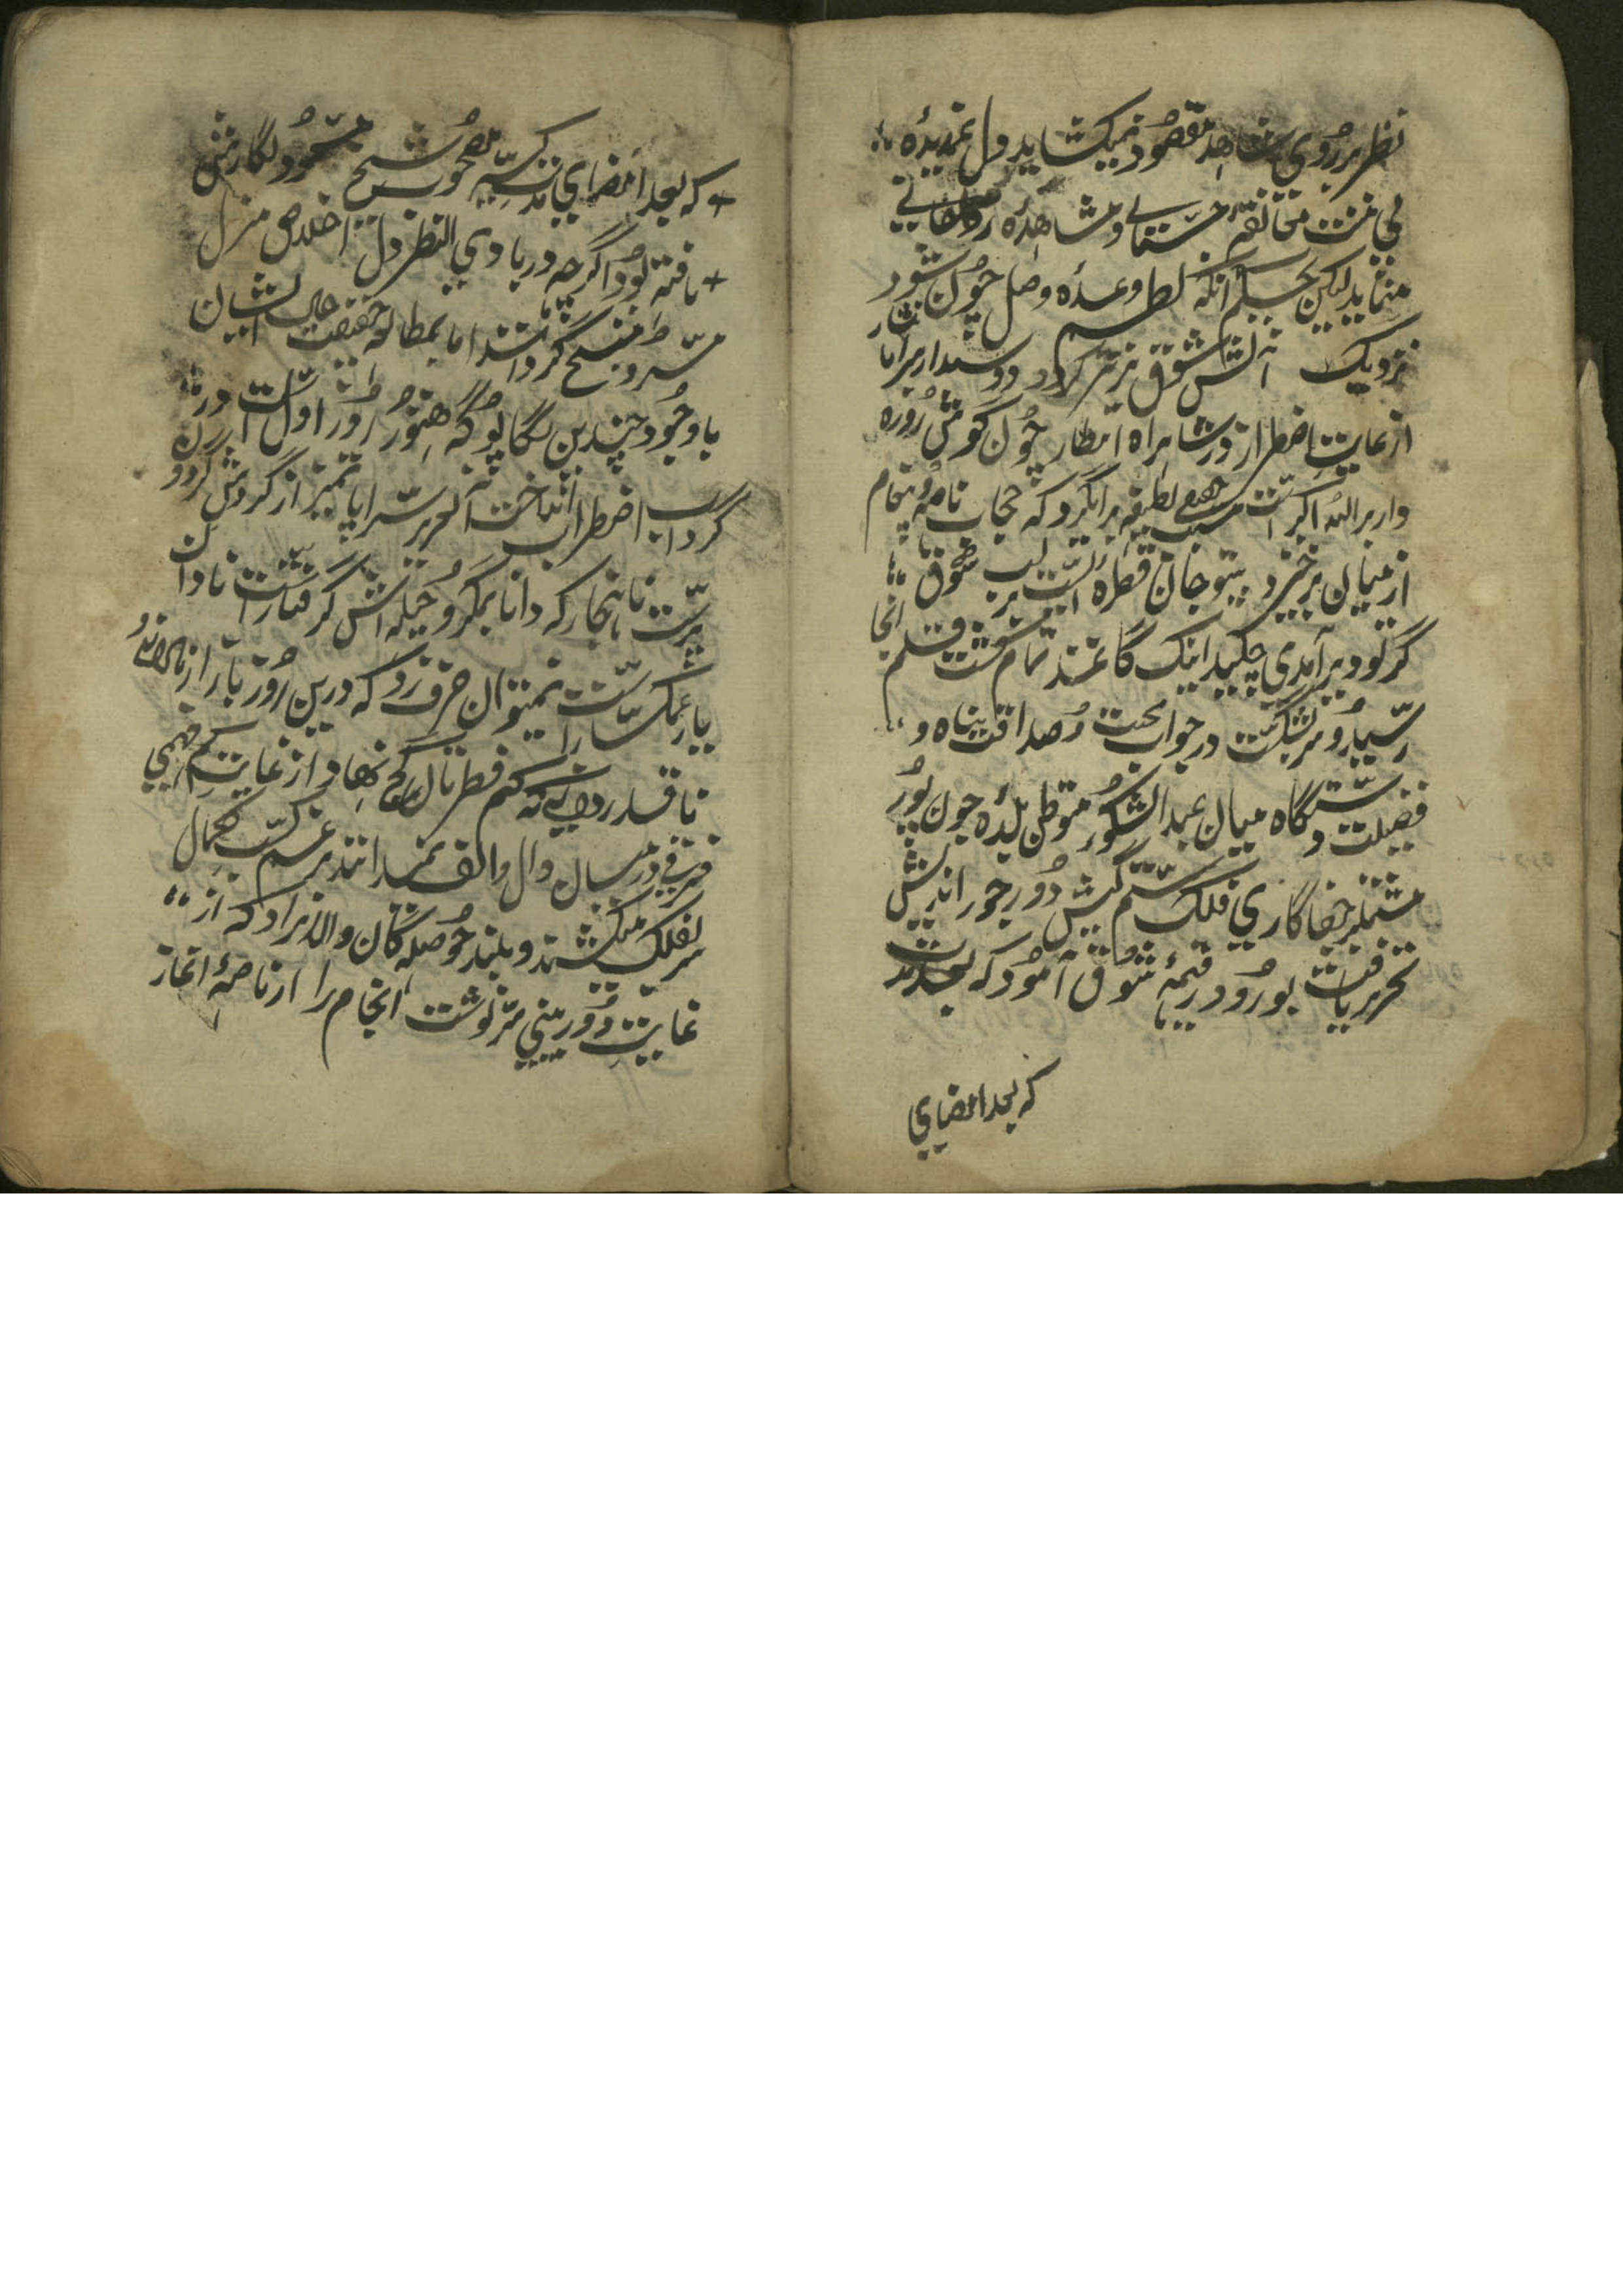 نظر بر روی شاهد مقصود نمیکشاید و دل غمدیده
بی منت مخالفه جسمانی و مشاهده روحانی
مینماید لیکن بحکم آنکه نظم وعده وصل چون شود
نزدیک آتش شوق تیزتر گردد دوستدار سراپا
از غایت اضطرار در شاهراه انتظار چون گوش روزه
دار بر الله اکبر است سعی لطیفه برانگیزد که حجاب نامه و پیغام
از میان برخیزد بیت و جان قطره ایست بر لب شوق
گر بود برآمدی چکید اینک کاغذ تمام گشت قلم اینجا
رسید و سر بشکست در جواب محبت و صداقت پناه و
فضیلت دستگاه میان عبد الشکور متوطن بلده جون پور
مشتمل بر جفا کاری فلک ستم کیش دور جور اندیش
تحریر یافت بورود رقیمه شوق آمود که بعد مدت
که بعد انقضای
که بعد انقضای مدت مصحوب شیخ مسعود نگارش
یافته بود اگرچه در بادی النظر دل اخلاص منزل
مسرور و منبسط گردانید اما بمطالعه حقیقت حال ایشان
باوجود چندین تگاپو که هنوز روز اول است در
گرداب اضطراب انداخت الحق سراپا تمیز از گردش گردون
پرست ناهنجار که دانا بمکر و حیله اش گرفتار است نادان
یار غمگسار است نمیتوان حرف زد که درین روز بازار
ناقدردانی که کم فطرتان کج نهاد از غایت کم فهمی
فرقی در میان دال و الف نمیدانند بر عدم کسب کمال
سر بفلک میکشند و بلند حوصلگان والانژاد که از
غایت دوربینی سرنوشت انجام را از ناصیه آغاز